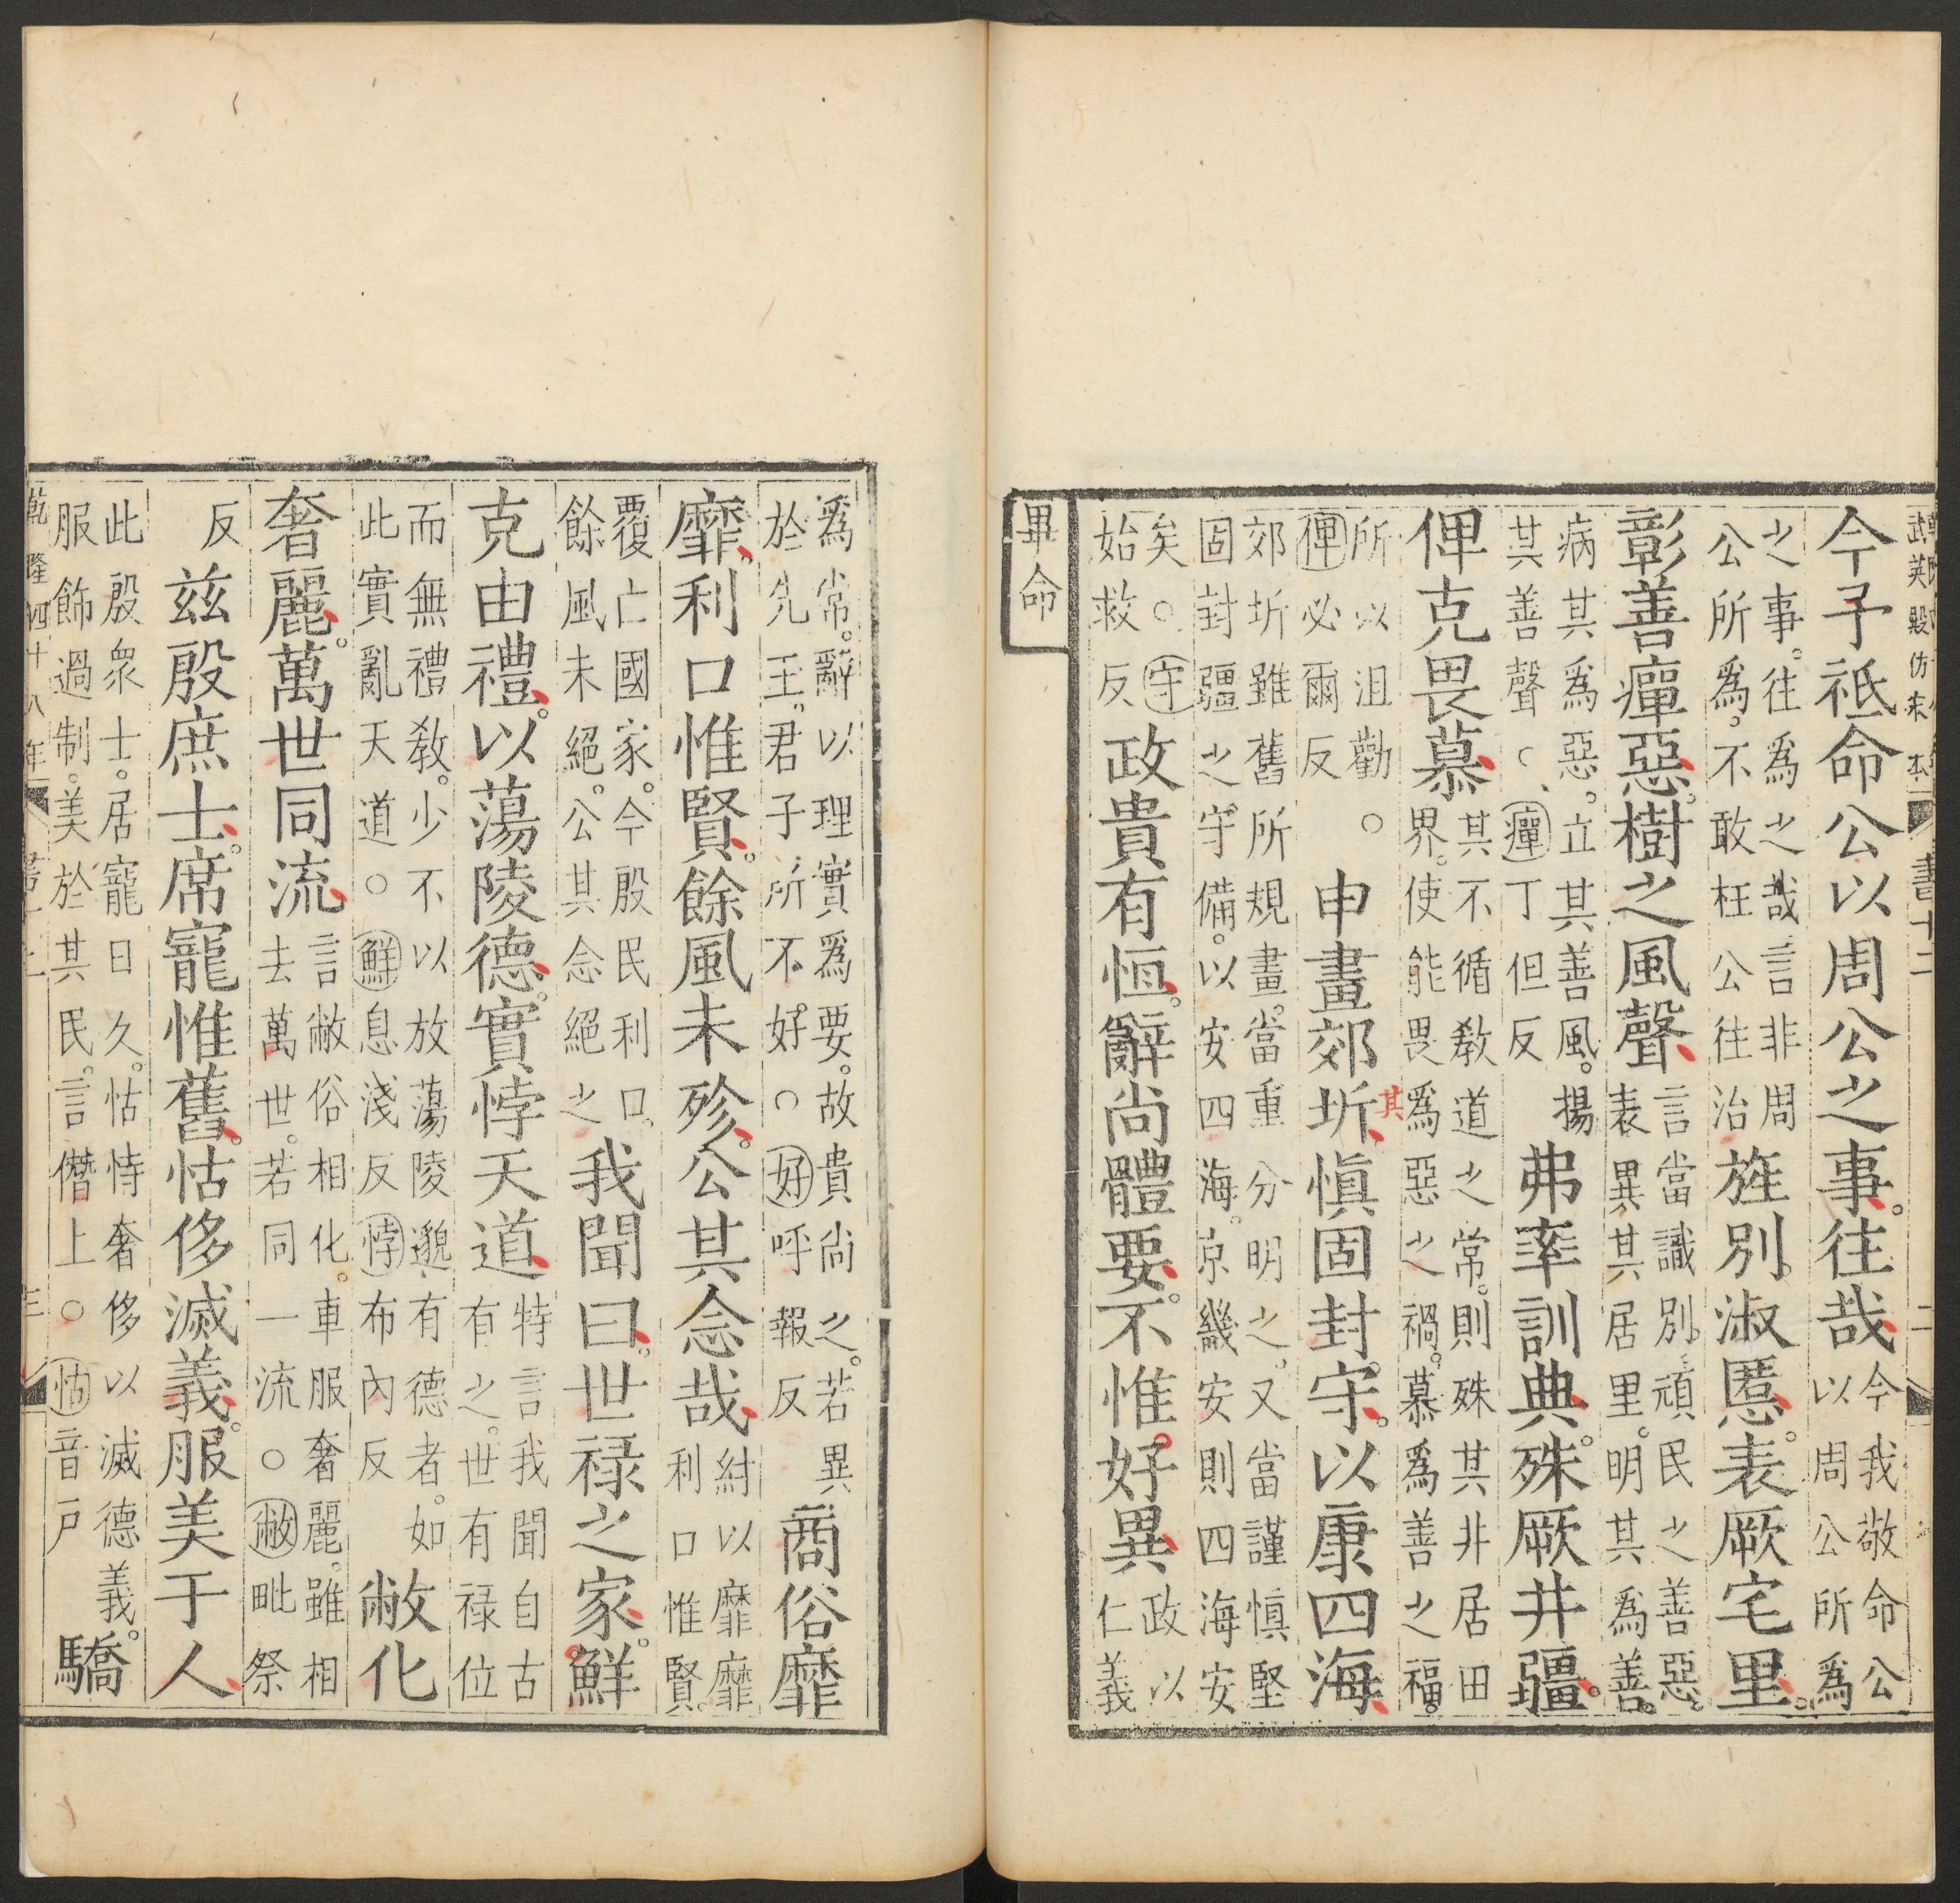 今予祗命公以周公之事往哉今我敬命公以周公所爲
之事往爲之哉言非周公所爲不敢枉公往治旌別淑慝表厥宅里
彰善癉惡樹之風聲言當識別頑民之善惡表異其居里明其爲善
病其爲惡立其善風揚其善聲○癉丁但反弗率訓典殊厥井疆
俾克畏慕其不循敎道之常則殊其非居田界使能畏爲惡之禍慕爲善之福
所以沮勸○俾必爾反申畫郊圻愼固封守以康四海
郊圻雖舊所規畫當重分明之又當謹愼堅固封疆之守備以安四海京畿安則四海安
矣○守始救反政貴有恆辭尚體要不惟好異政以仁義
畢命
武英殿仿宋本
書十二
二
其
爲常辭以理實爲要故貴尚之若異於先王君子所不好○好呼報反商俗靡
靡利口惟賢餘風未殄公其念哉紂以靡靡利口惟賢
覆亡國家今殷民利口餘風未絕公其念絕之我聞曰世祿之家鮮
克由禮以蕩陵德實悖天道特言我聞自古有之世有祿位
而無禮敎少不以放蕩陵邈有德者如此實亂天道○鮮息淺反悖布內反敝化
奢麗萬世同流言敝俗相化車服奢麗雖相去萬世若同一流○敝毗祭
反茲殷庶士席寵惟舊怙侈滅義服美于人
此殷衆士居寵日久怙恃奢侈以滅德義服飾過制美於其民言僭上○怙音戶驕
乾隆四十八年
三